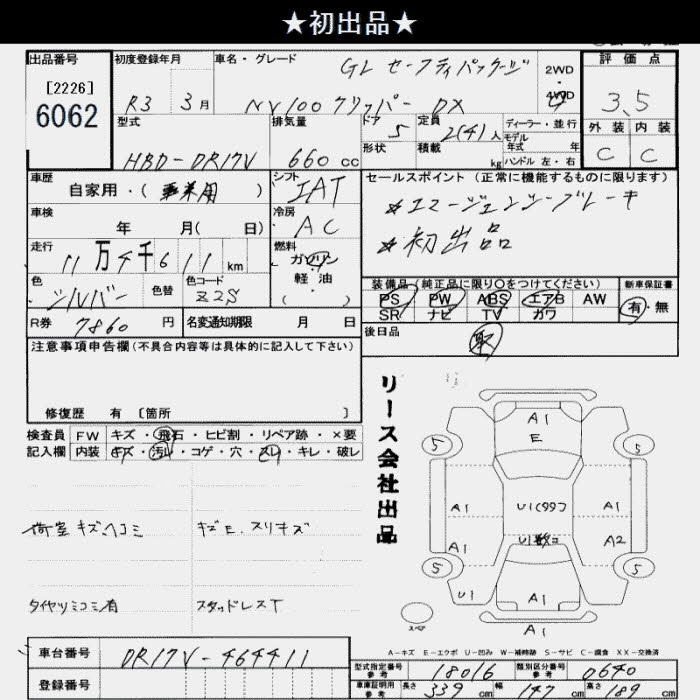 ★初出品★
出品番号
[2226]
6062
初度登録年月
R3 3月
車名・グレード
GL セーフティパッケージ
NV100 クリッパー DX
2WD
4WD
評価点
3.5
外装 内装
C C
型式
HBD-DR17V
排気量
660 cc
ドア
5
形状
定員
2(4)人
積載
kg
ディーラー・並行
モデル
年式 年
ハンドル 左・右
車歴
自家用・(乗用)
シフト
IAT
車検
年 月( 日)
冷房
AC
走行
11万4千611km
燃料
ガソリン
軽・油
( )
色
シルバー
色替
色コード
Z2S
R券 7860 円
名変通知期限 月 日
セールスポイント (正常に機能するものに限ります)
☆エマージェンシーブレーキ
☆初出品
装備品(純正品に限り〇をつけてください)
PS PW ABS エアB AW
SR ナビ TV カワ
新車保証書
有・無
後日品
注意事項申告欄(不具合内容等は具体的に記入して下さい)
修復歴 有 [箇所 ]
検査員 FW キズ・飛石・ヒビ割・リペア跡・×要
記入欄 内装 キズ・汚れ・コゲ・穴・スレ・キレ・破レ
荷室 キズ、ヘコミ
キズE、スリキズ
タイヤツミコミ有
スタッドレスT
リース会社出品
A1
E
5 5
A1 U1(99コ A1
A1 U1数コ A2
5 5
U1 A1
スペア
A1
A-キズ E-エクボ U-凹み W-補修跡 S-サビ C-腐食 XX-交換済
車台番号 DR17V-464411
登録番号
型式指定番号
参考
18016
類別区分番号
参考
0640
車庫証明用
参考
長さ 339 cm 幅 147 cm 高さ 189 cm